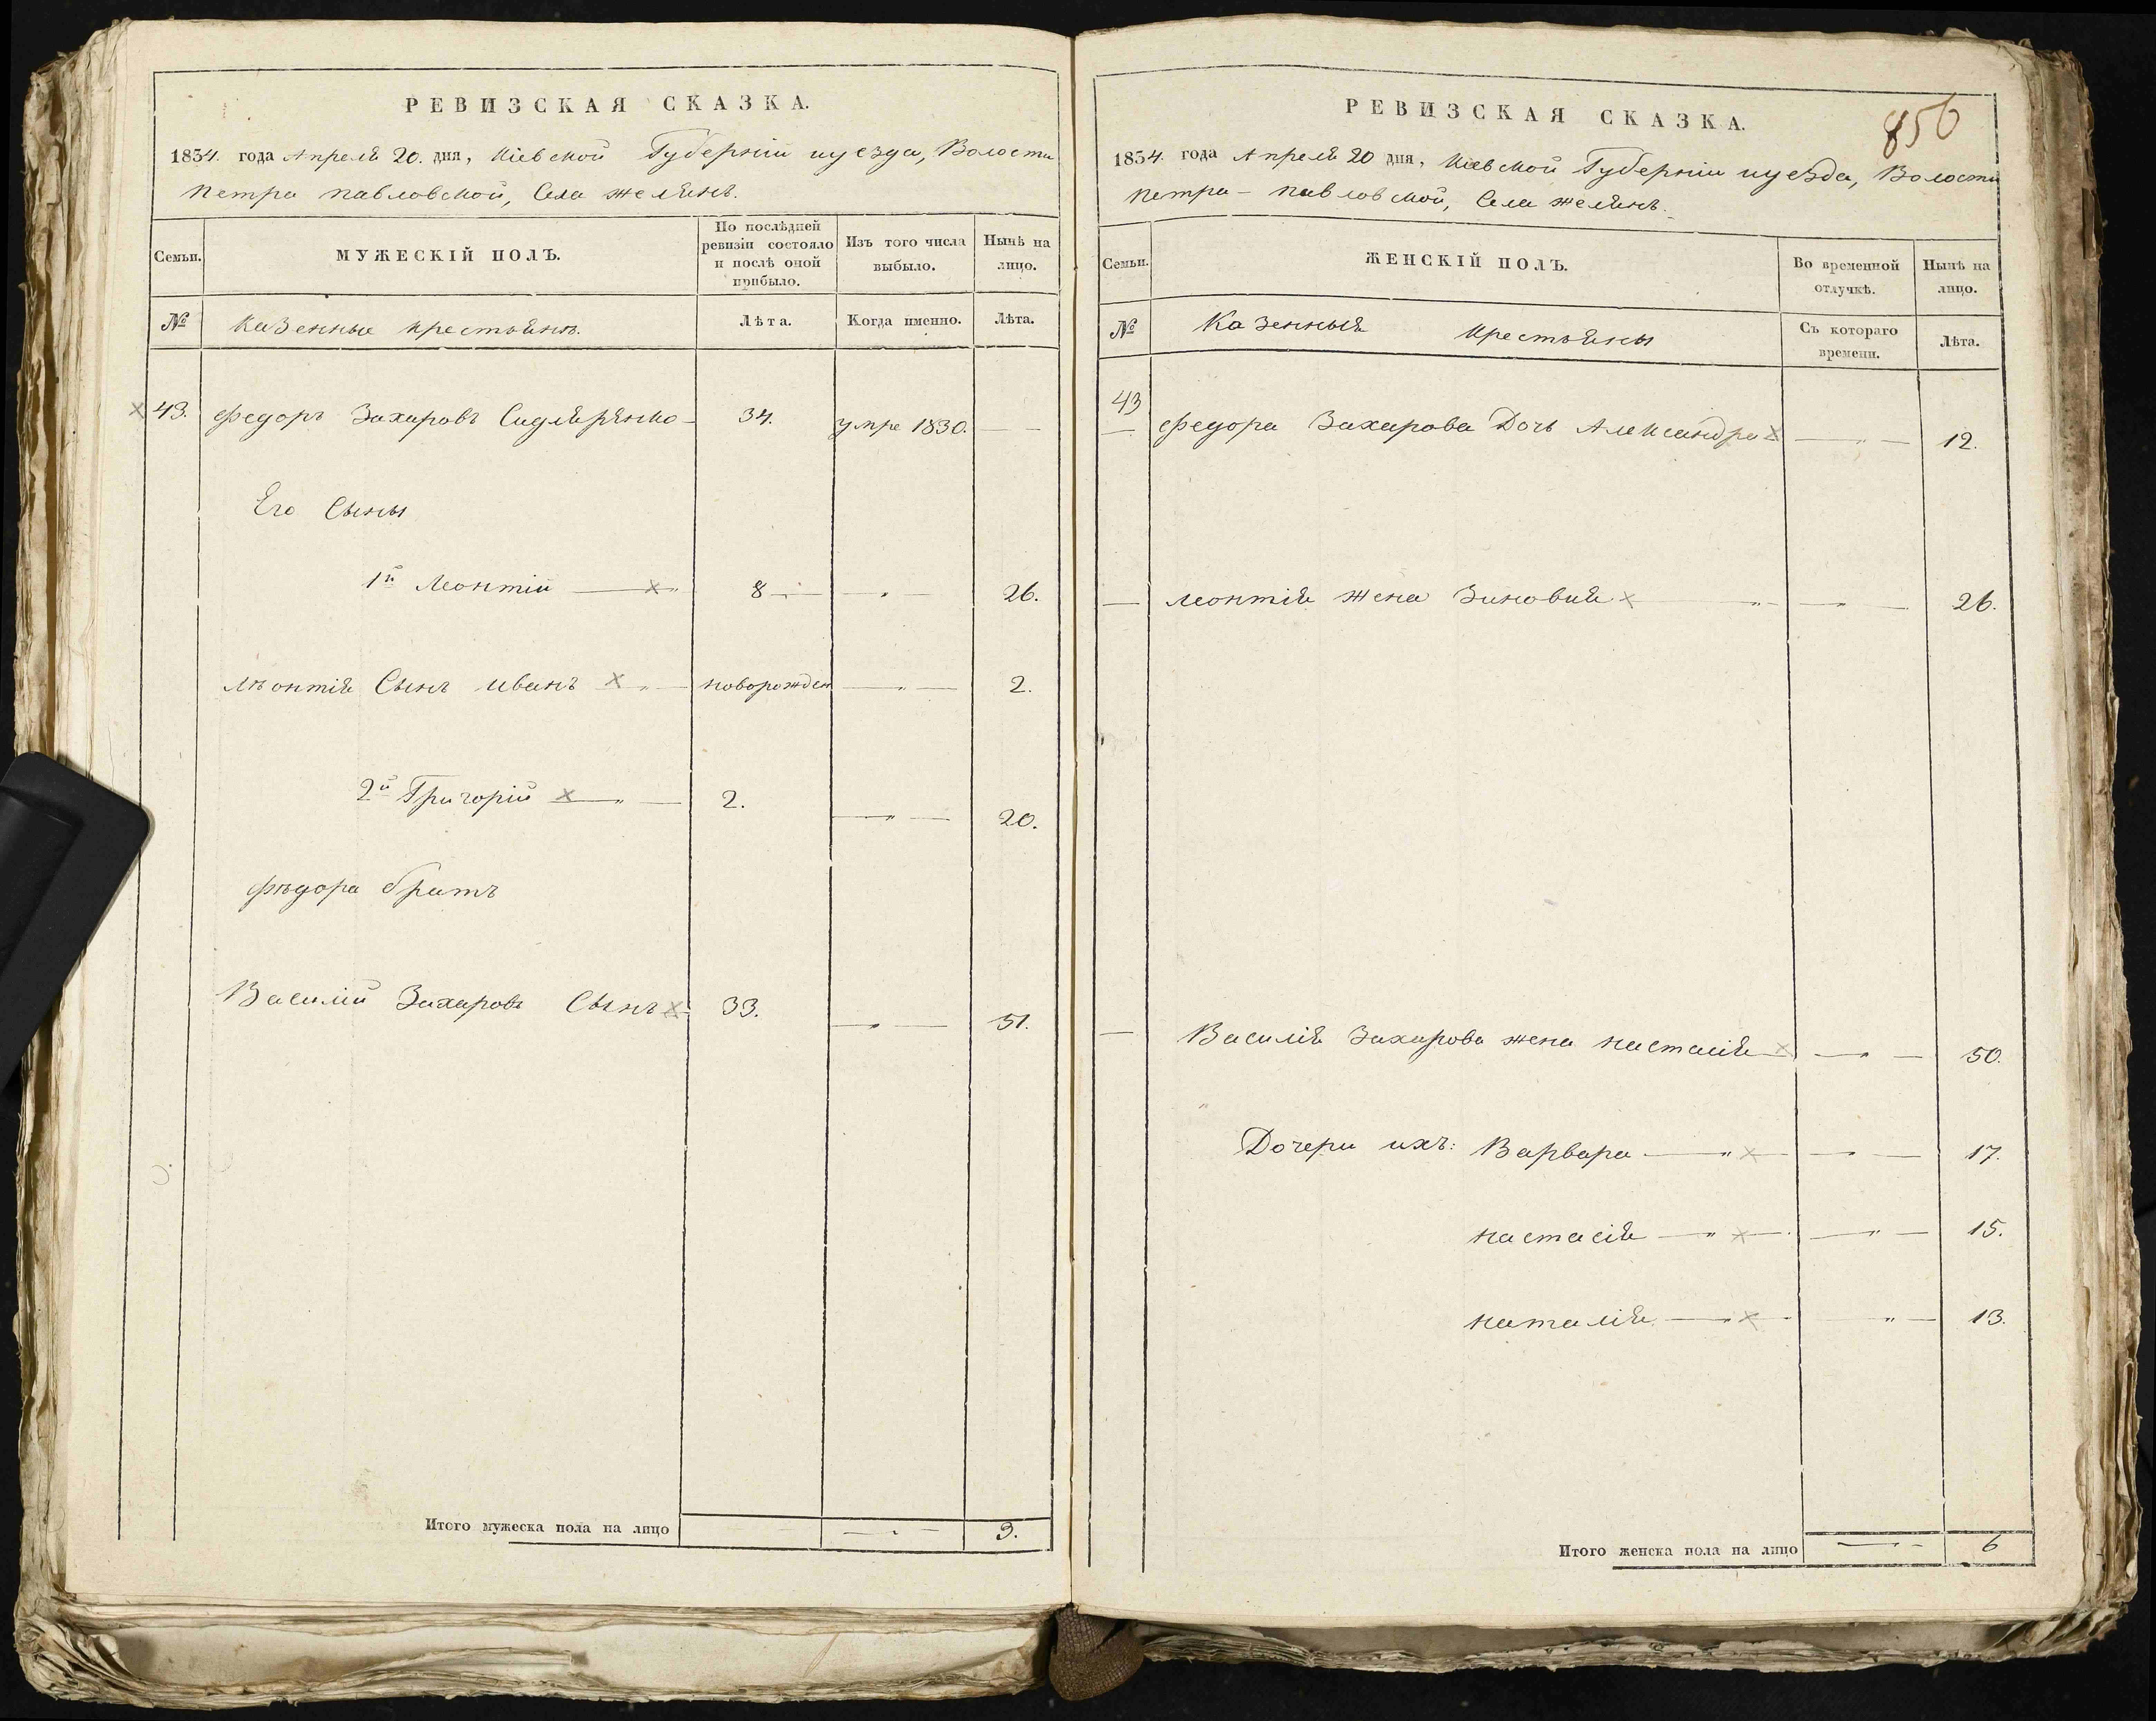 РЕВИЗСКАЯ СКАЗКА.
1834. года Апреля 20. дня, Кіевской Губерніи иуезда, Волости
Петра Павловской, Села Желянъ.
Семьи.
МУЖЕСКІЙ ПОЛЪ.
По послѣдней ревизіи состояло и послѣ оной прибыло.
Изъ того числа выбыло.
Нынѣ на лицо.
№
Казенные крестьянъ.
Лѣта.
Когда именно.
Лѣта.
43. Федоръ Захаровъ Сидляренко 34. умре 1830.
Его Сыны
1й Леонтій 8 26.
Лѣонтія Сынъ Иванъ новорожден 2.
2й Григорій 2. 20.
Фѣдора братъ
Василій Захаровъ Сынъ 33. 51.
Итого мужеска пола на лицо
РЕВИЗСКАЯ СКАЗКА.
856
1834. года Апреля 20 дня, Кіевской Губерніи иуезда, Волости
Петра-Павловской, Села Желянъ.
Семьи.
ЖЕНСКІЙ ПОЛЪ.
Во временной отлучкѣ.
Нынѣ на лицо.
№
Казенныя крестьяны
Съ котораго времени.
Лѣта.
43 Федора Захарова Дочь Александра 12.
Леонтія жена Зиновия 26.
Василія Захарова жена Настасія 50.
Дочери ихъ: Варвара 17.
Настасія 15.
Наталія 13.
Итого женска пола на лицо 6